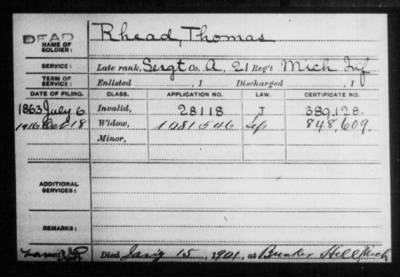 DEAD
NAME OF SOLDIER: Rhead, Thomas
SERVICE: Late rank, Sergt Co. A, 21 Reg't Mich Inf
TERM OF SERVICE: Enlisted , 1 Discharged , 1
DATE OF FILING. CLASS. APPLICATION NO. LAW. CERTIFICATE NO.
1863 July 6 Invalid, 28118 J 389,128.
1916 18 Widow, 1081546 848,609.
Minor,
ADDITIONAL SERVICES:
REMARKS:
Died Jan'y 15, 1901, at Bunker Hill Mich